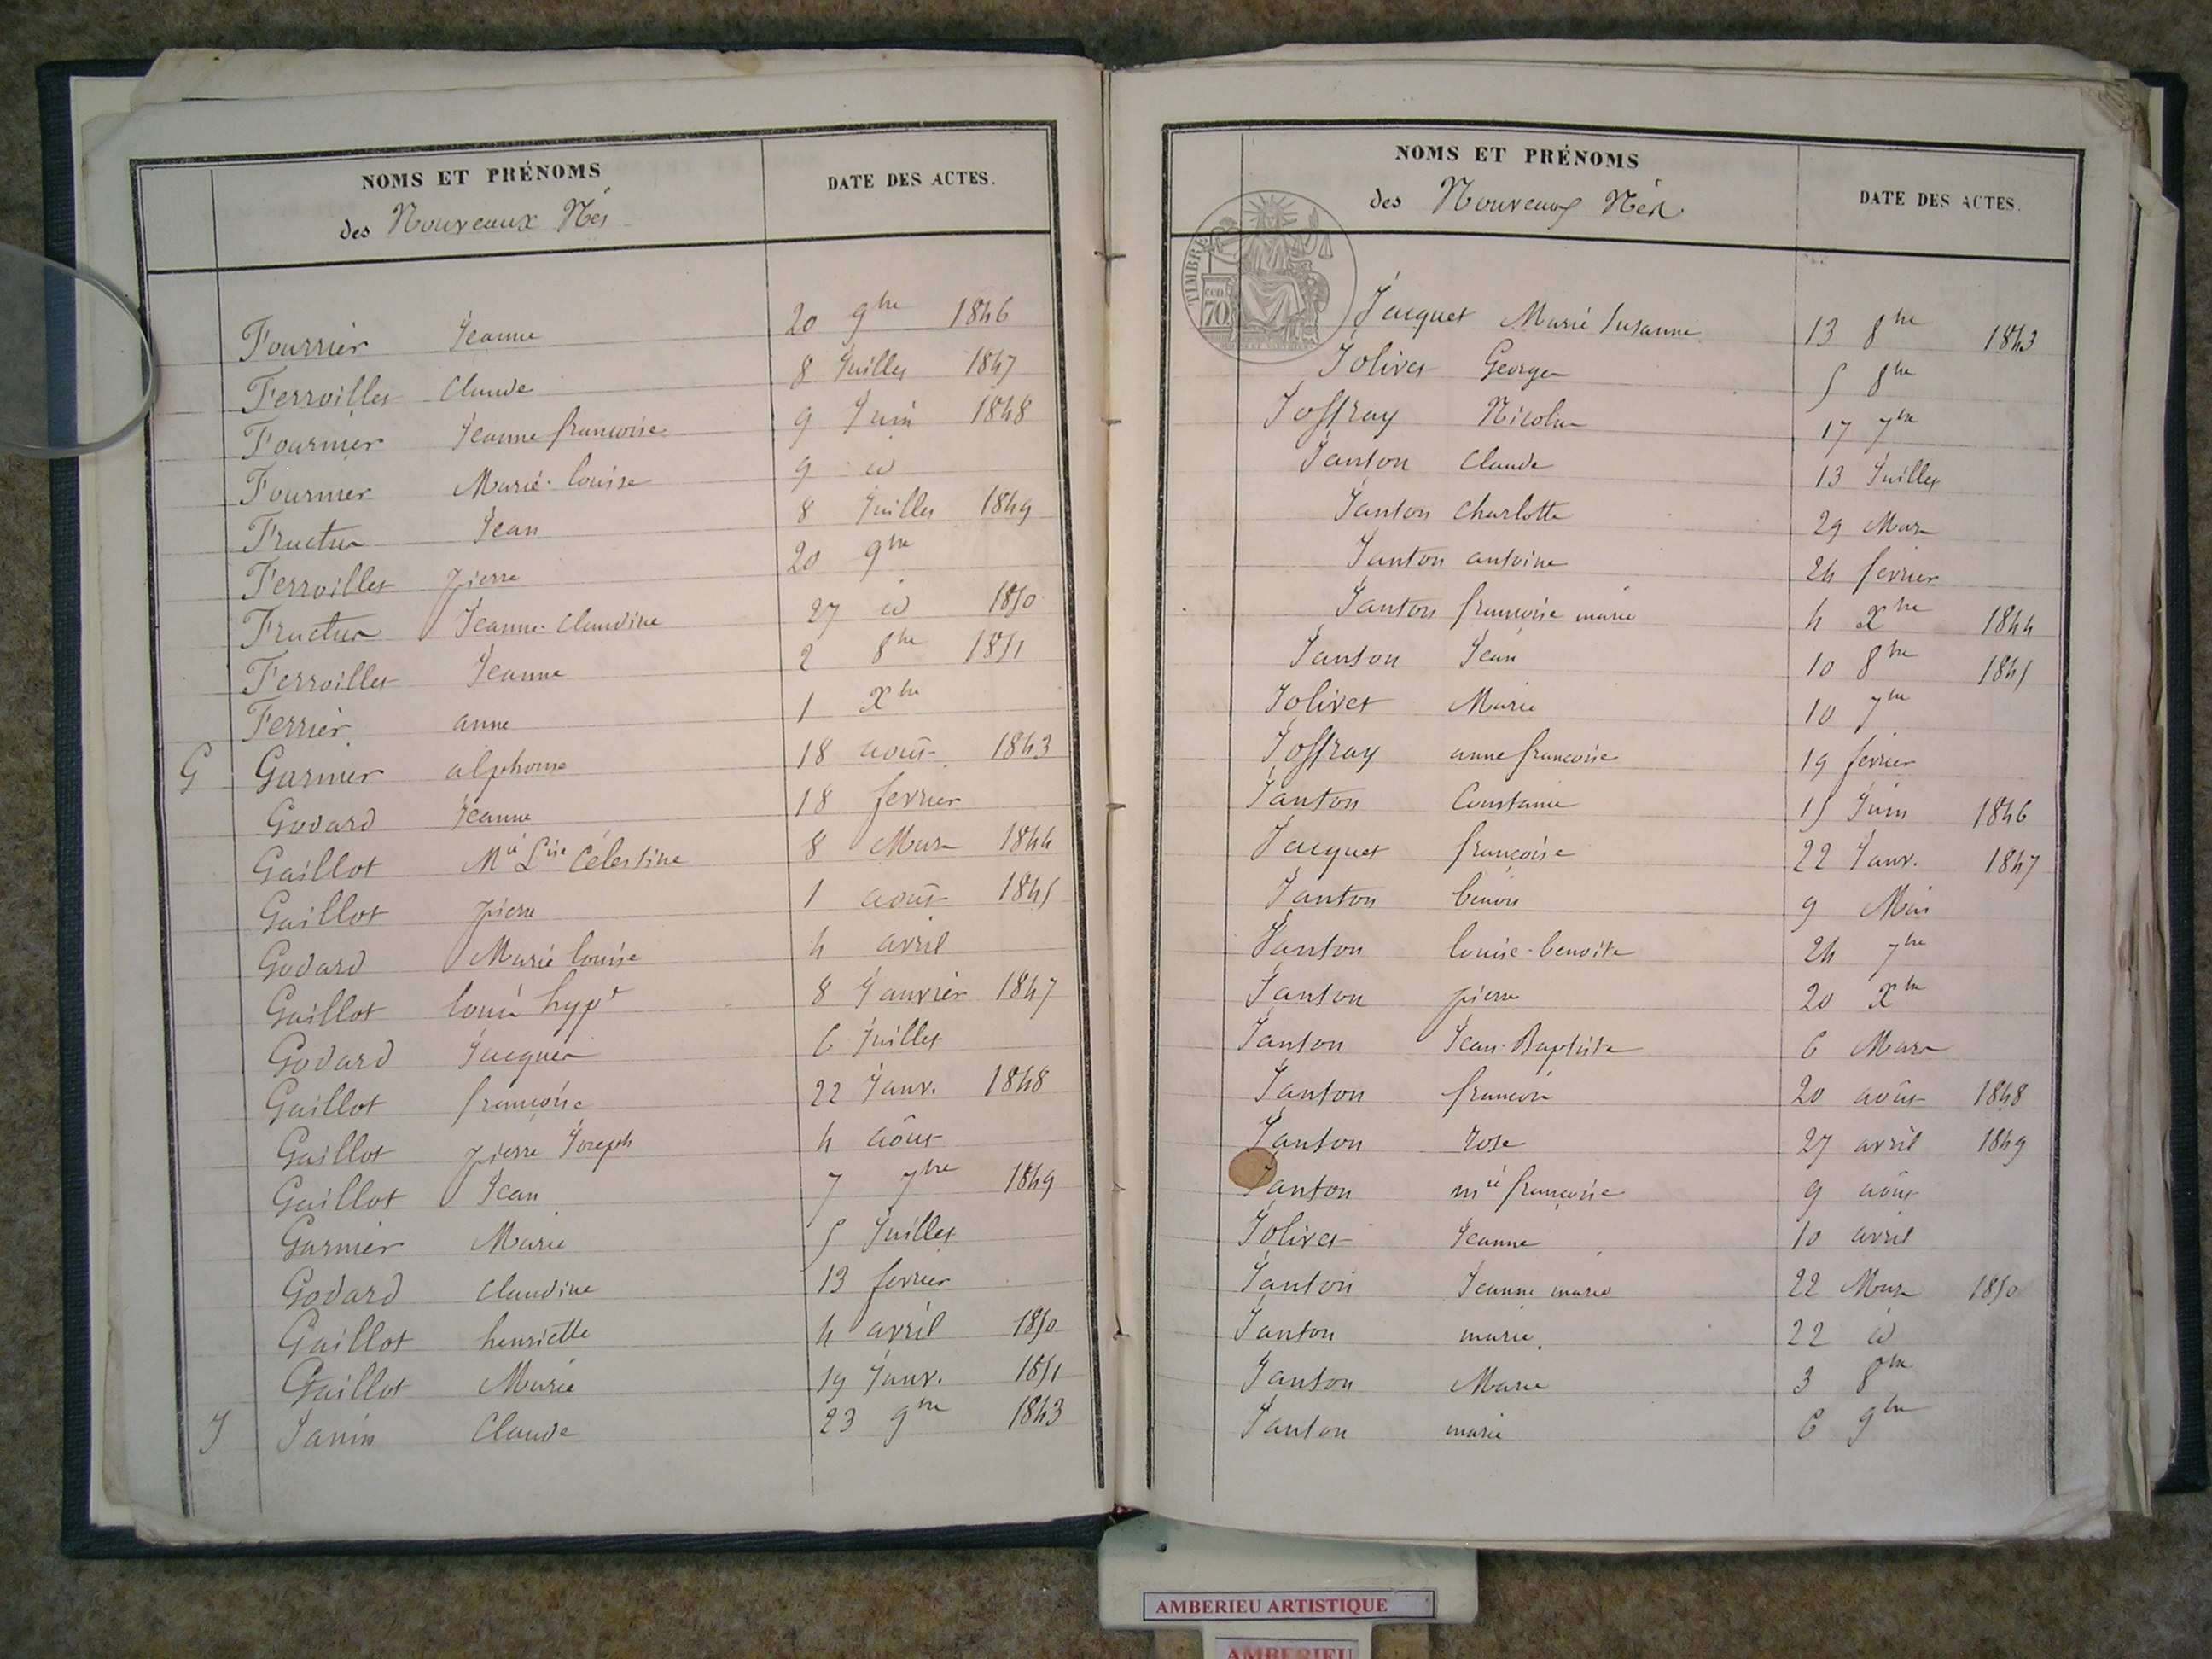 NOMS ET PRÉNOMS
des Nouveaux Nés
DATE DES ACTES.
Fournier Jeanne 20 9bre 1846
Ferroillet Claude 8 Juillet 1847
Fournier Jeanne françoise 9 Juin 1848
Fournier Marie-louise 9 id
Fructus Jean 8 Juillet 1849
Ferroillet pierre 20 9bre
Fructus Jeanne-Claudine 27 id 1850
Ferroillet Jeanne 2 8bre 1851
Ferrier anne 1 Xbre
G Garnier alphonse 18 août 1843
Godard Jeanne 18 fevrier
Gaillot Mie Lise Célestine 8 Mars 1844
Gaillot pierre 1 août 1845
Godard Marie louise 4 avril
Gaillot louis hypte 8 Janvier 1847
Godard Jacques 6 Juillet
Gaillot françoise 22 Janv. 1848
Gaillot pierre Joseph 4 août
Gaillot Jean 7 7bre 1849
Garnier Marie 5 Juillet
Godard Claudine 13 fevrier
Gaillot henriette 4 avril 1850
Gaillot Marie 19 Janv. 1851
J Janin Claude 23 9bre 1843
NOMS ET PRÉNOMS
des Nouveaux Nés
DATE DES ACTES.
TIMBRE
cent.
70
Jacquet Marie Susanne 13 8bre 1843
Jolivet George 5 8bre
Joffray Nicolas 17 7bre
Janton Claude 13 Juillet
Janton Charlotte 29 Mars
Janton antoine 24 fevrier
Janton françoise marie 4 Xbre 1844
Janton Jean 10 8bre 1845
Jolivet Marie 10 7bre
Joffray anne françoise 19 fevrier
Janton Constance 15 Juin 1846
Jacquet françoise 22 Janv. 1847
Janton benoit 9 Mai
Janton louise-benoite 24 7bre
Janton pierre 20 Xbre
Janton Jean-Baptiste 6 Mars
Janton françois 20 août 1848
Janton rose 27 avril 1849
Janton mie françoise 9 août
Jolivet Jeanne 10 avril
Janton Jeanne marie 22 Mars 1850
Janton marie. 22 id
Janton Marie 3 8bre
Janton marie 6 9bre
AMBERIEU ARTISTIQUE
AMBERIEU